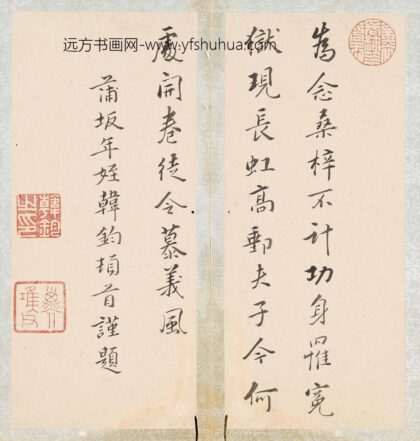 远方书画网-www.yfshuhua.com
為念桑梓不計功身罹冤
獄現長虹高郵夫子今何
處開卷徒令慕義風
蒲坂年姪韓鈞頓首謹題